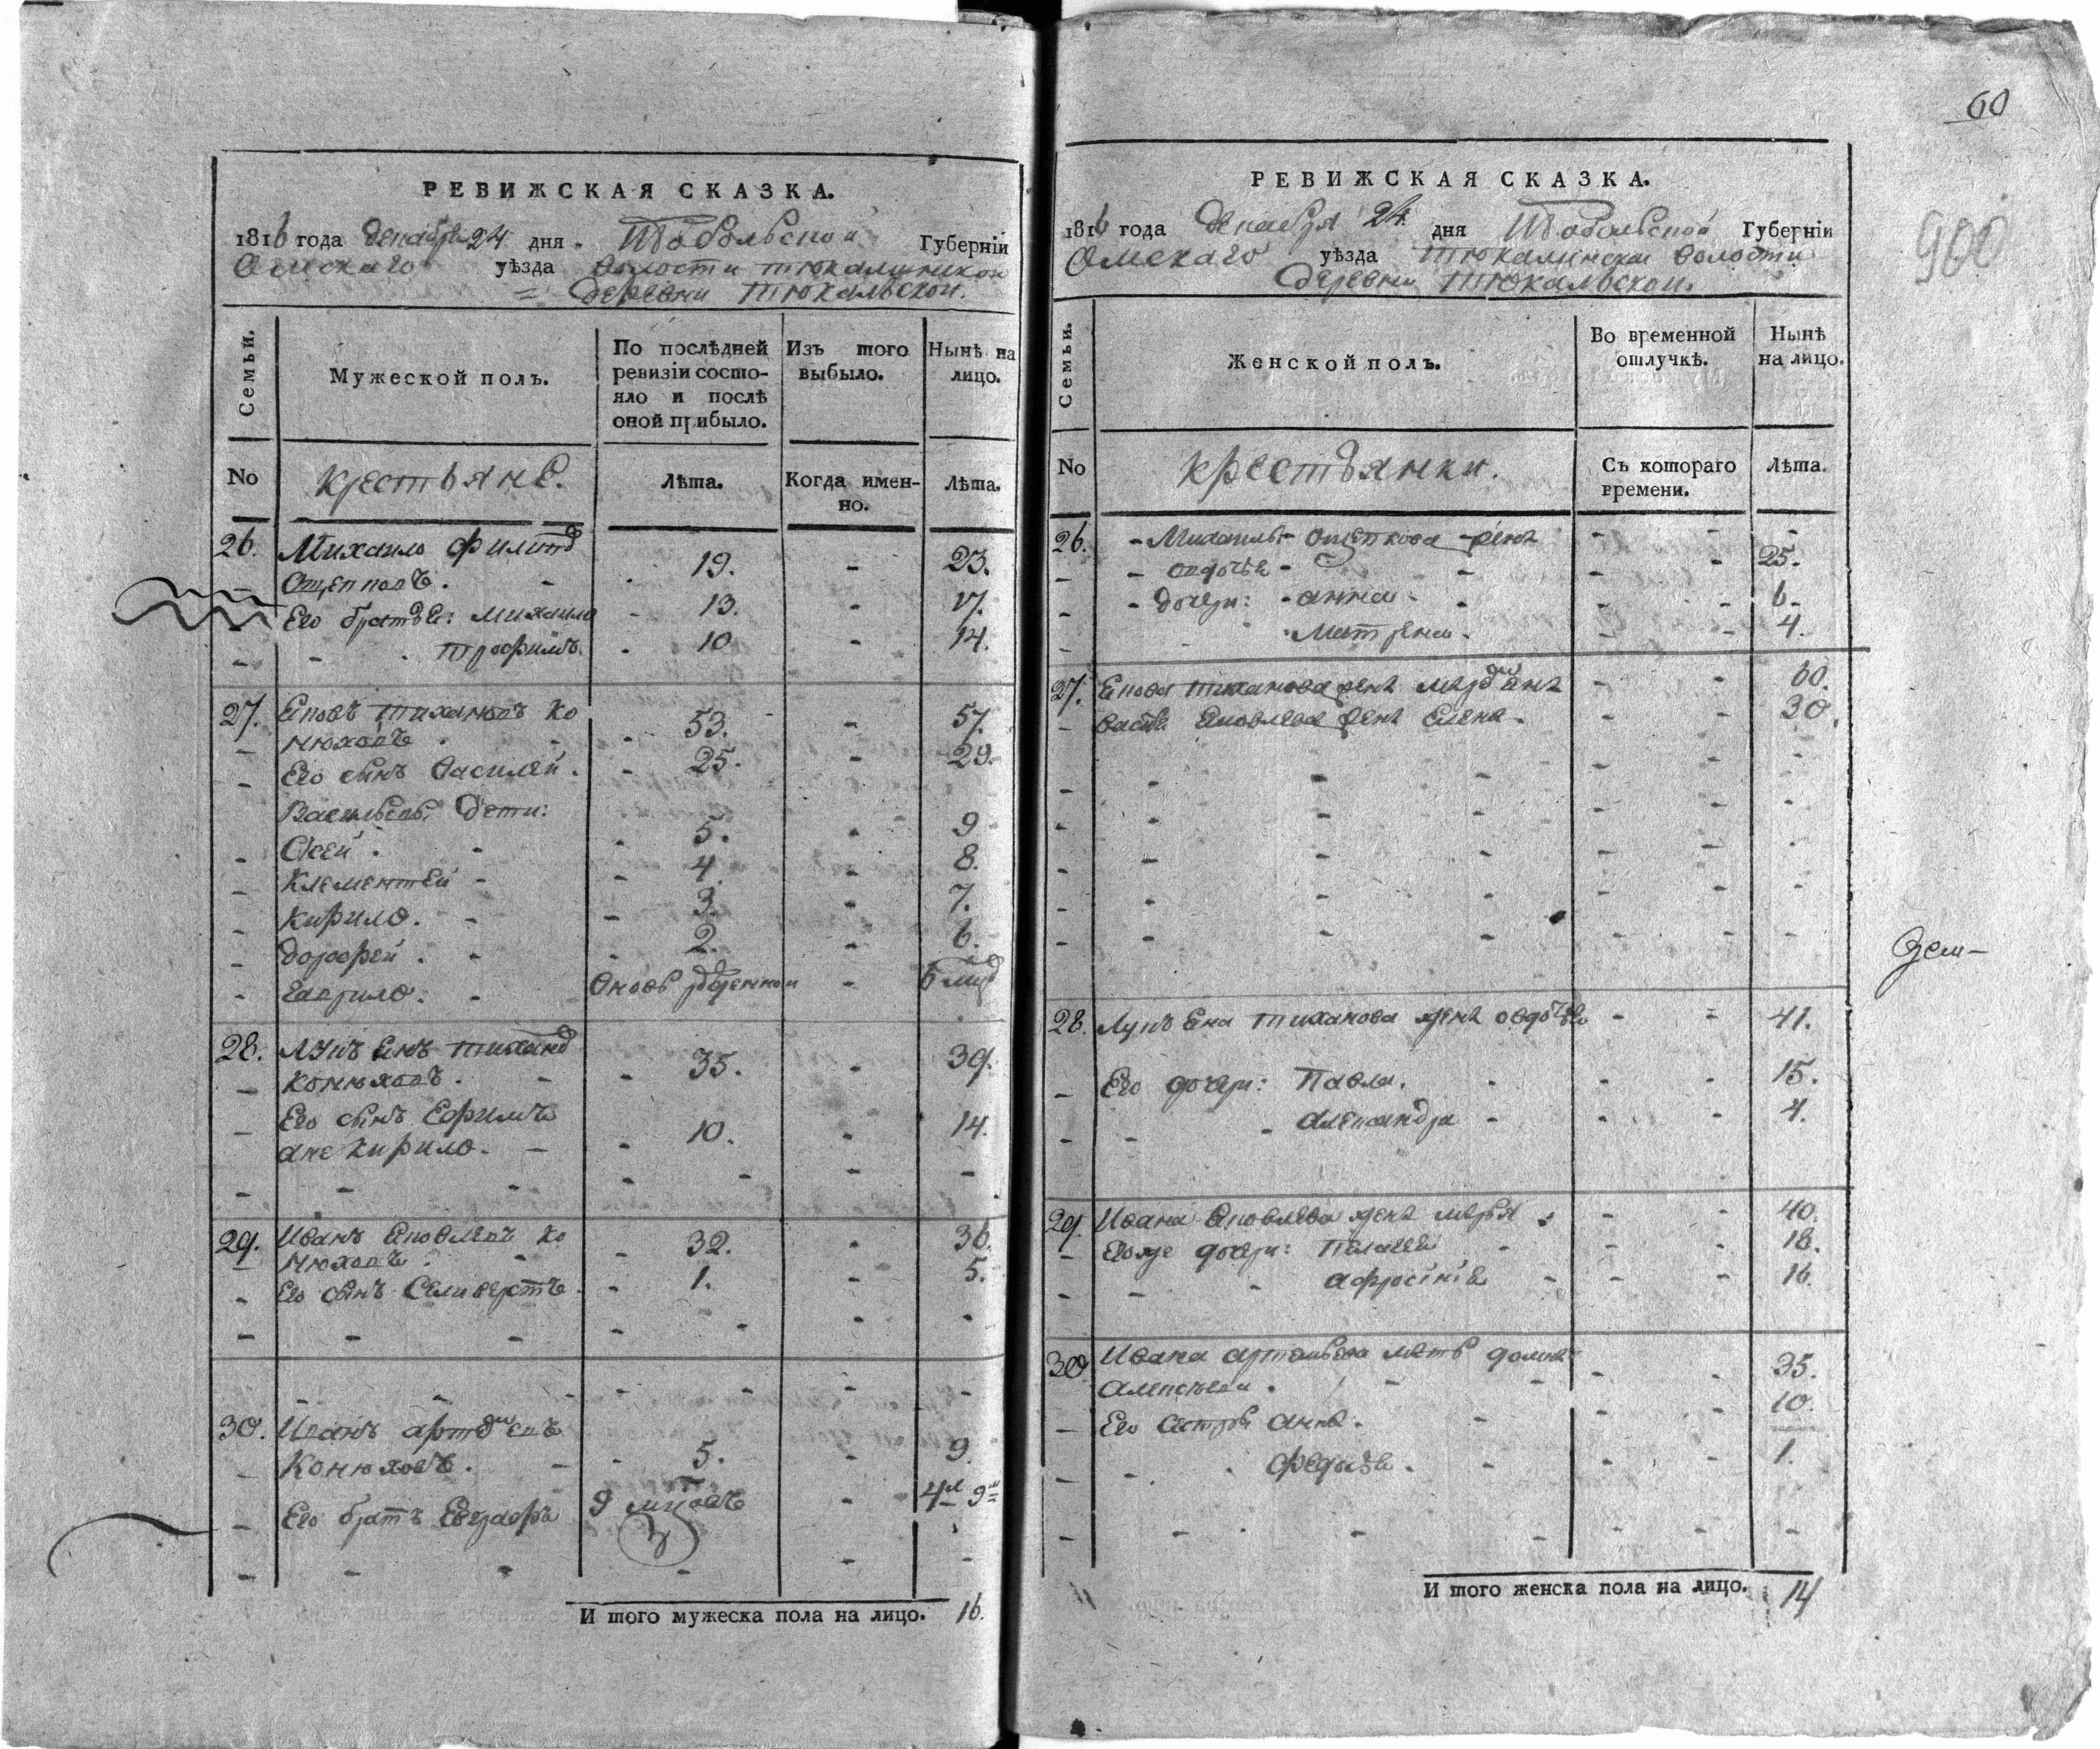 РЕВИЖСКАЯ СКАЗКА.
1816 года декабря 24 дня Тобольской Губерніи
Омскаго уѣзда волости тюкалинской
деревни Тюкальской.
Семьи.
Мужеской полъ.
По послѣдней
ревизіи состо-
яло и послѣ
оной прибыло.
Изъ того
выбыло.
Нынѣ на
лицо.
No
крестьяне.
Лѣта.
Когда имен-
но.
Лѣта.
26. Михаило
19. - 23.
Его братья: Михаило 13. - 17.
Трофимъ. 10 - 14.
27. тихановъ ко
нюховъ. 53. - 57.
Его сынъ василей. 25. - 29.
Васильевы дети:
5. - 9
Клементей - 4. - 8.
кирило. - 3. - 7.
дорофей. - 2. - 6.
гаврило. -
28.
конюховъ. - 35. - 39.
Его сынъ Ефимъ
ане кирило. - 10. - 14.
29. Иванъ яковлевъ ко
нюховъ. 32. - 36.
Его сынъ Селиверстъ. 1. - 5.
30. Иванъ
Конюховъ. - 5. - 9
Его братъ Евграфъ 9
И того мужеска пола на лицо. 16.
60
900
РЕВИЖСКАЯ СКАЗКА.
1816 года декабря 24. дня Тобольской Губерніи
Омскаго уѣзда Тюкалинской волости
деревни Тюкальской.
Семьи.
Женской полъ.
Во временной
отлучкѣ.
Нынѣ
на лицо.
No
крестьянки.
Съ котораго
времени.
Лѣта.
26. - Михаила жена
- овдотья - 25.
- дочери: - анна - 6
Матрена. 4.
27. тиханова жена 60.
яковлева жена Елена. 30.
28. тиханова жена овдотья - 41.
Его дочери: Павла. 15.
александра - 4.
29. Ивана яковлева жена марья 40.
Егоже дочери: Палагея 18.
афросинія 16.
30. Ивана мать домна
алексеева. 35.
Его сестры анна. 10.
федосья. 1.
И того женска пола на лицо. 14